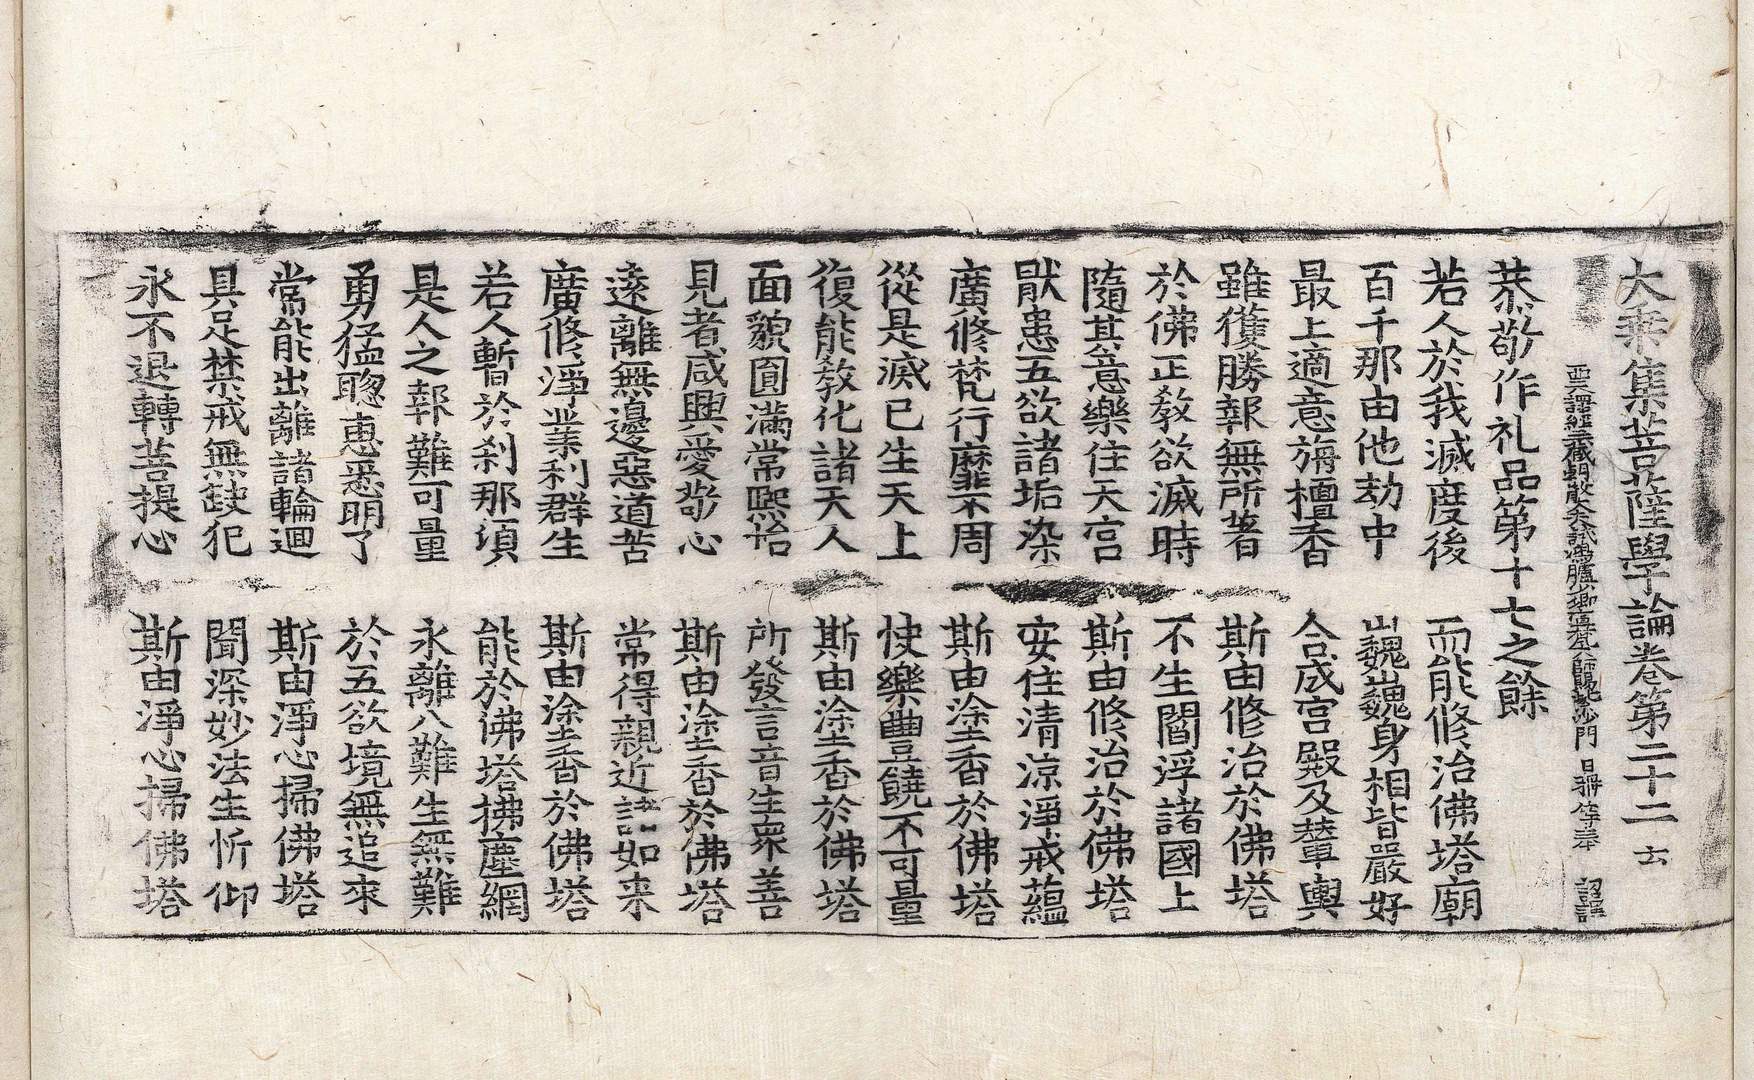 大乗集菩薩學論卷第二十二 六
西天譯經三藏朝散大夫試鴻臚少卿宣梵大師賜紫沙門 日稱 等奉 詔譯
恭敬作礼品第十七之餘
若人於我滅度後 而能修治佛塔廟
百千那由他劫中 巍巍身相皆嚴好
最上適意旃檀香 合成宮殿及輦輿
雖獲勝報無所著 斯由修治於佛塔
於佛正教欲滅時 不生閻浮諸國上
隨其意樂住天宮 斯由修治於佛塔
猒患五欲諸垢染 安住清涼淨戒蘊
廣修梵行靡不周 斯由塗香於佛塔
從是滅已生天上 快樂豐饒不可量
復能教化諸天人 斯由塗香於佛塔
面貌圓滿常熙怡 所發言音生衆善
見者咸興愛敬心 斯由塗香於佛塔
遠離無邊惡道苦 常得親近諸如来
廣修淨業利群生 斯由塗香於佛塔
若人暫於刹那頃 能於佛塔拂塵網
是人之報難可量 永離八難生無難
勇猛聦恵悉明了 於五欲境無追求
常能出離諸輪迴 斯由淨心掃佛塔
具足禁戒無缺犯 聞深妙法生忻仰
永不退轉菩提心 斯由淨心掃佛塔